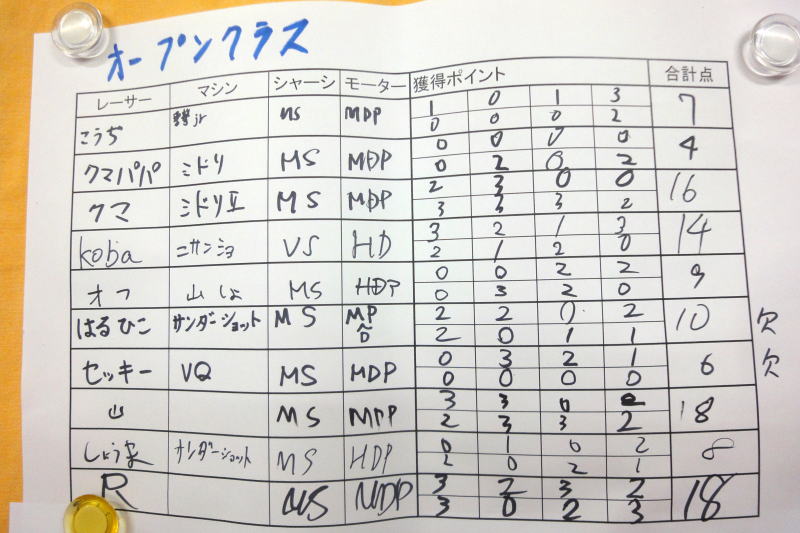 オープンクラス
レーサー マシン シャーシ モーター 獲得ポイント 合計点
こうぢ MS MDP 1 0 1 3 7
0 0 0 2
クマパパ ミドリ MS MDP 0 0 0 0 4
0 2 0 2
クマ ミドリⅡ MS MDP 2 3 0 0 16
3 3 3 2
koba ニサンショ VS HD 3 2 1 3 14
2 1 2 0
オフ 山しょ MS HDP 0 0 2 2 9
0 3 2 0
はるひこ サンダーショット MS MP 2 2 0 2 10 欠
D 2 0 1 1
セッキー VQ MS MDP 0 3 2 1 6 欠
0 0 0 0
山 MS MDP 3 3 0 18
2 3 3 2
しょう サンダーショット MS HDP 0 1 0 2 8
2 0 2 1
R MS MDP 3 2 3 2 18
3 0 2 3